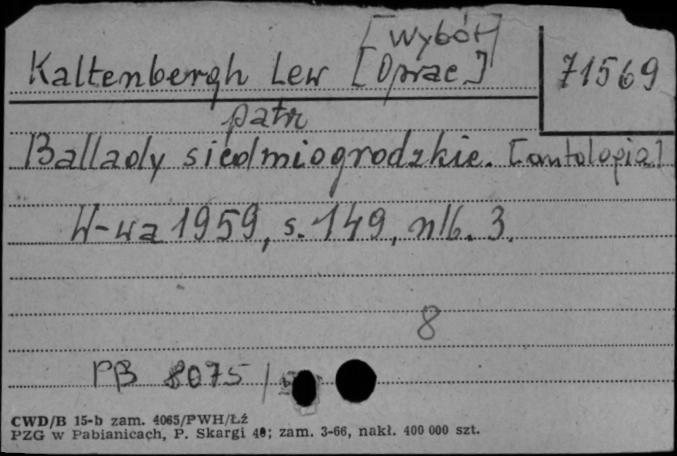 [Wybór]
Kaltenbergh Lew [Oprac.] 71569
patr
Ballady siedmiogrodzkie. [antologia]
W-wa 1959, s. 149, nlb. 3.
8
PB 8075 /
CWD/B 15-b zam. 4065/PWH/Łź
PZG w Pabianicach, P. Skargi 40; zam. 3-66, nakł. 400 000 szt.